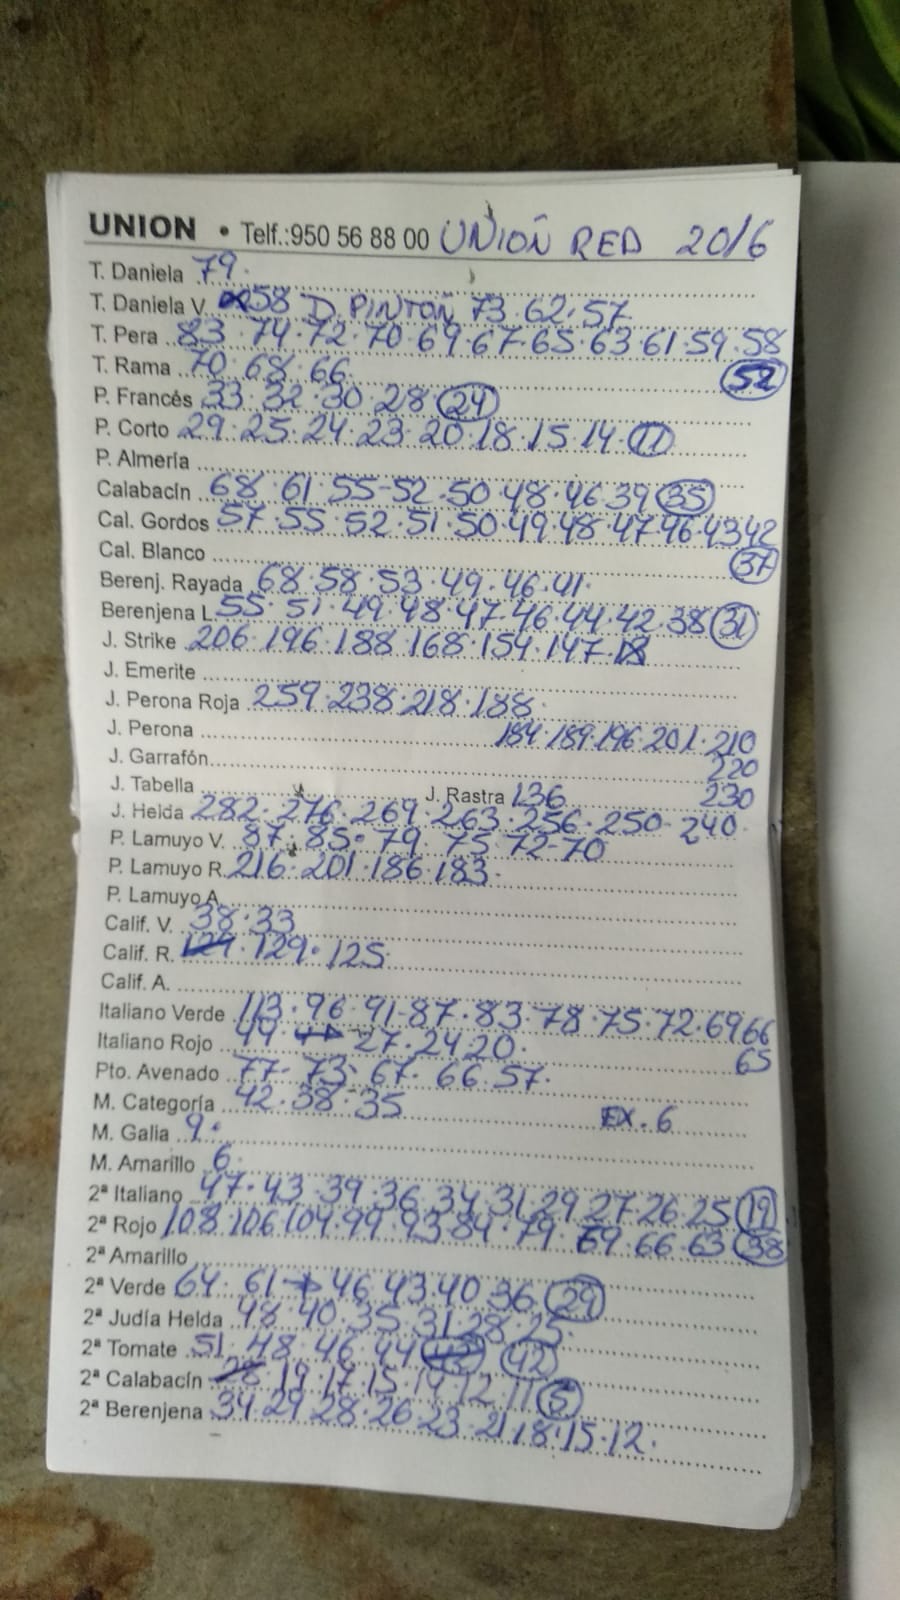 UNION • Telf.:950 56 88 00 UNIOÑ RED 20/6
T. Daniela 79.
T. Daniela V. 58 D. PINTOÑ 73.62.57
T. Pera 83.74.72.70.69.67.65.63.61.59.58
T. Rama 70.68.66. 52
P. Francés 33.32.30.28 24
P. Corto 29.25.24.23.20.18.15.14.11
P. Almería
Calabacín 68.61.55-52.50.48.46.39 35
Cal. Gordos 57.55.52.51.50.49.48.47.46.43 42
Cal. Blanco 37
Berenj. Rayada 68.58.53.49.46.41.
Berenjena L 55.51.49.48.47.46.44.42.38 31
J. Strike 206.196.188.168.154.147.
J. Emerite
J. Perona Roja 259.238.218.188.
J. Perona 184.189.196.201.210
J. Garrafón 220
J. Tabella J. Rastra 136 230
J. Helda 282.276.269.263.256.250.240.
P. Lamuyo V. 87.85.79.75.72-70
P. Lamuyo R. 216.201.186.183.
P. Lamuyo A.
Calif. V. 38.33
Calif. R. 129.125
Calif. A.
Italiano Verde 113.96.91-87.83.78.75.72.69 66
Italiano Rojo 27.24 20. 65
Pto. Avenado 77-73-67.66.57.
M. Categoría 42.38.35 EX.6
M. Galia 9.
M. Amarillo 6
2ª Italiano 47.43.39.36.34.31.29.27.26.25 19
2ª Rojo 108.106.104.99.93.84.79.69.66.63 38
2ª Amarillo
2ª Verde 64.61 46.43.40 36 29
2ª Judía Helda 48.40.35.31.28.25.
2ª Tomate 51.48.46.44 42
2ª Calabacín 19.17.15.14.12.11 5
2ª Berenjena 34.29.28.26.23.21.18.15.12.